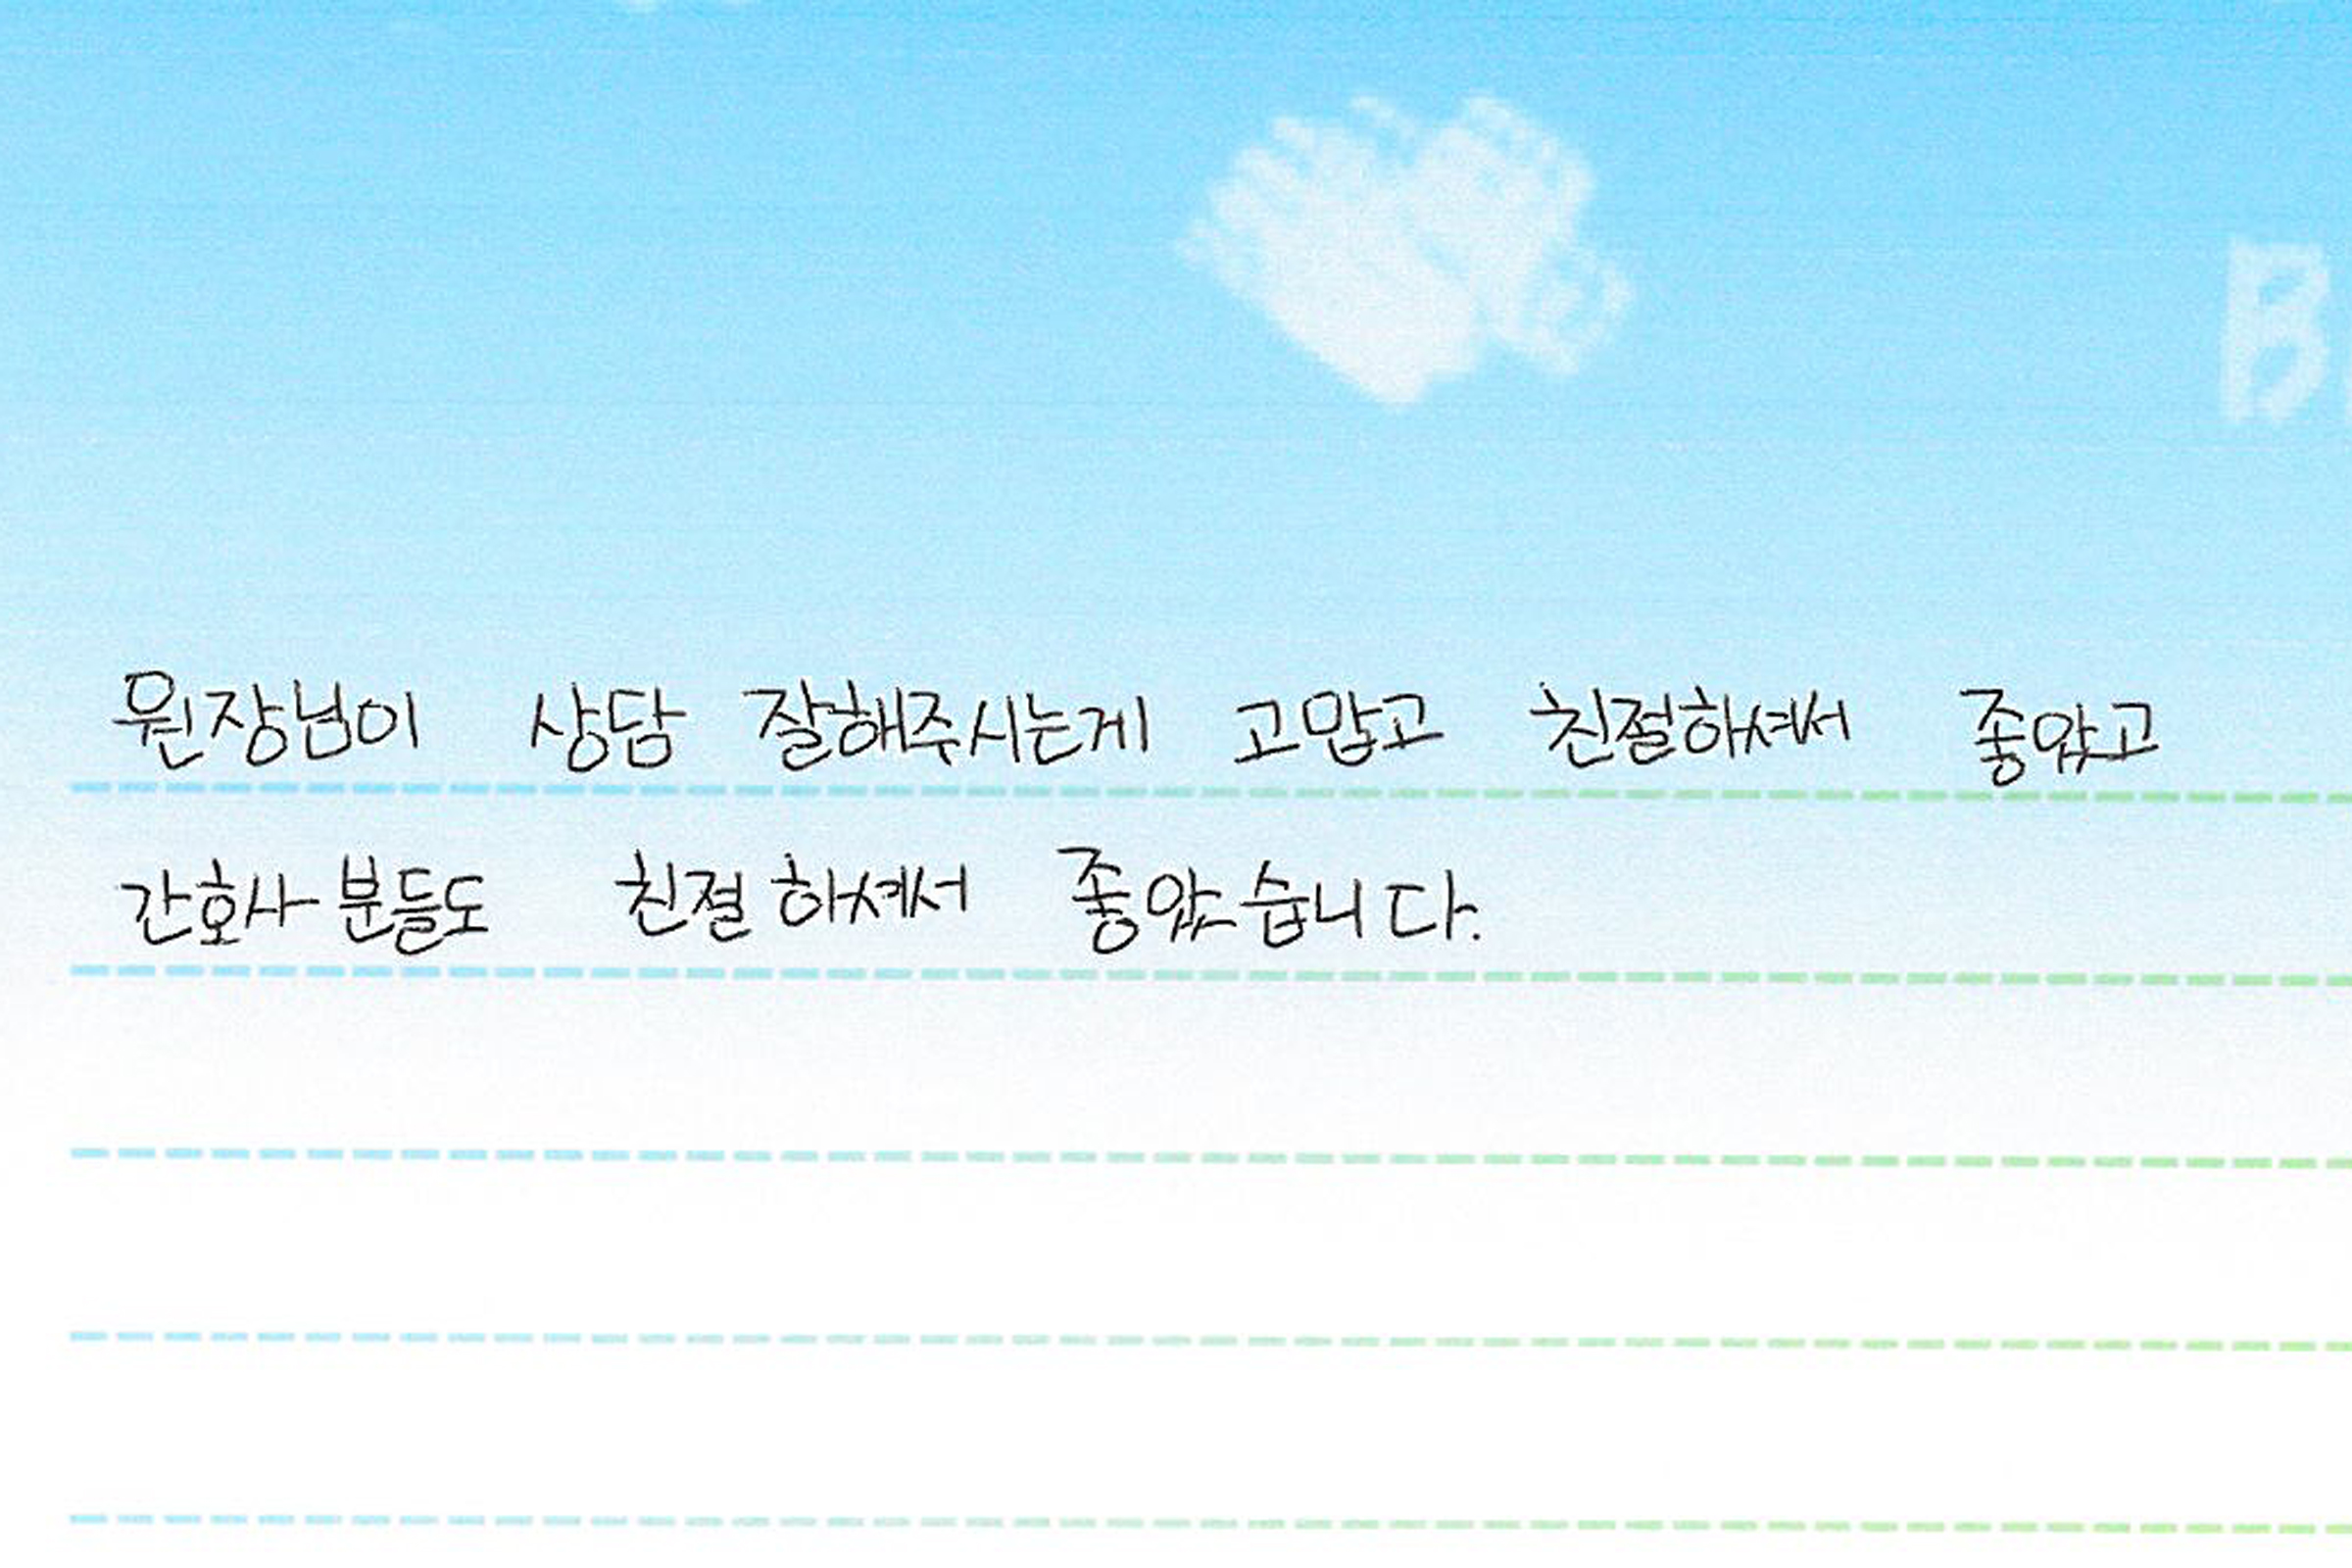 B
원장님이 상담 잘해주시는게 고맙고 친절하셔서 좋았고
간호사 분들도 친절 하셔서 좋았습니다.